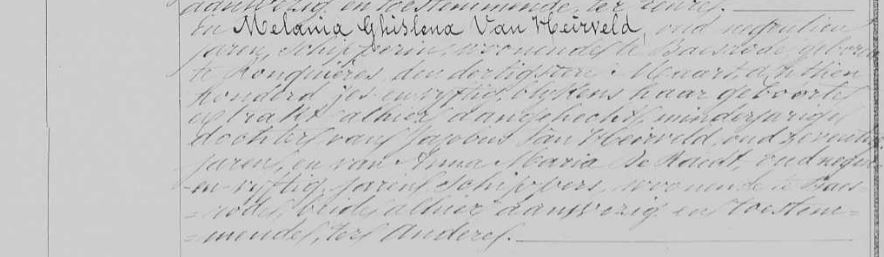 aanwezig en toestemmende, ter eenre.
En Melania Ghislena Van Heirveld, oud negentien
jaren, schipperin, woonende te Baesrode, geboren
te Ronquières, den dertigsten Maart achttien
honderd zes en vyftig, blykens haar geboorte
extrakt alhier aangehecht, minderjarige
dochter van Jacobus Van Heirveld, oud zeventig
jaren, en van Anna Maria De Raedt, oud negen
-en-vyftig jaren, schippers, woonende te Baes
=rode, beide alhier aanwezig en toestem=
=mende, ter andere.